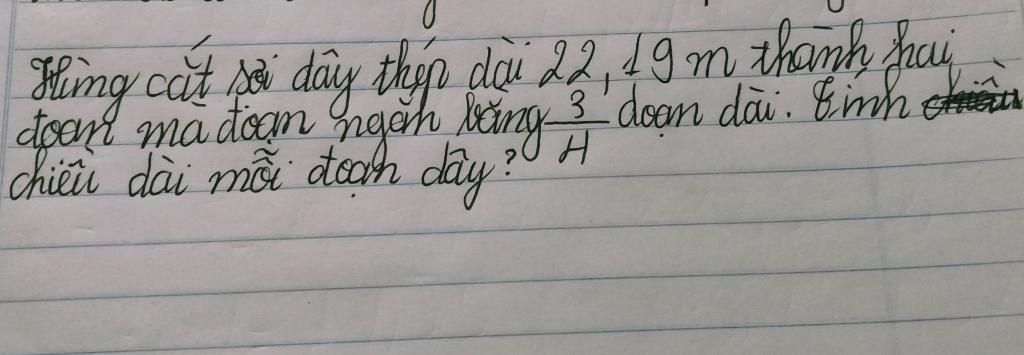 Hùng cắt sợi dây thép dài 22,19 m thành hai
đoạn mà đoạn ngắn bằng 3/4 đoạn dài. Tính
chiều dài mỗi đoạn dây?